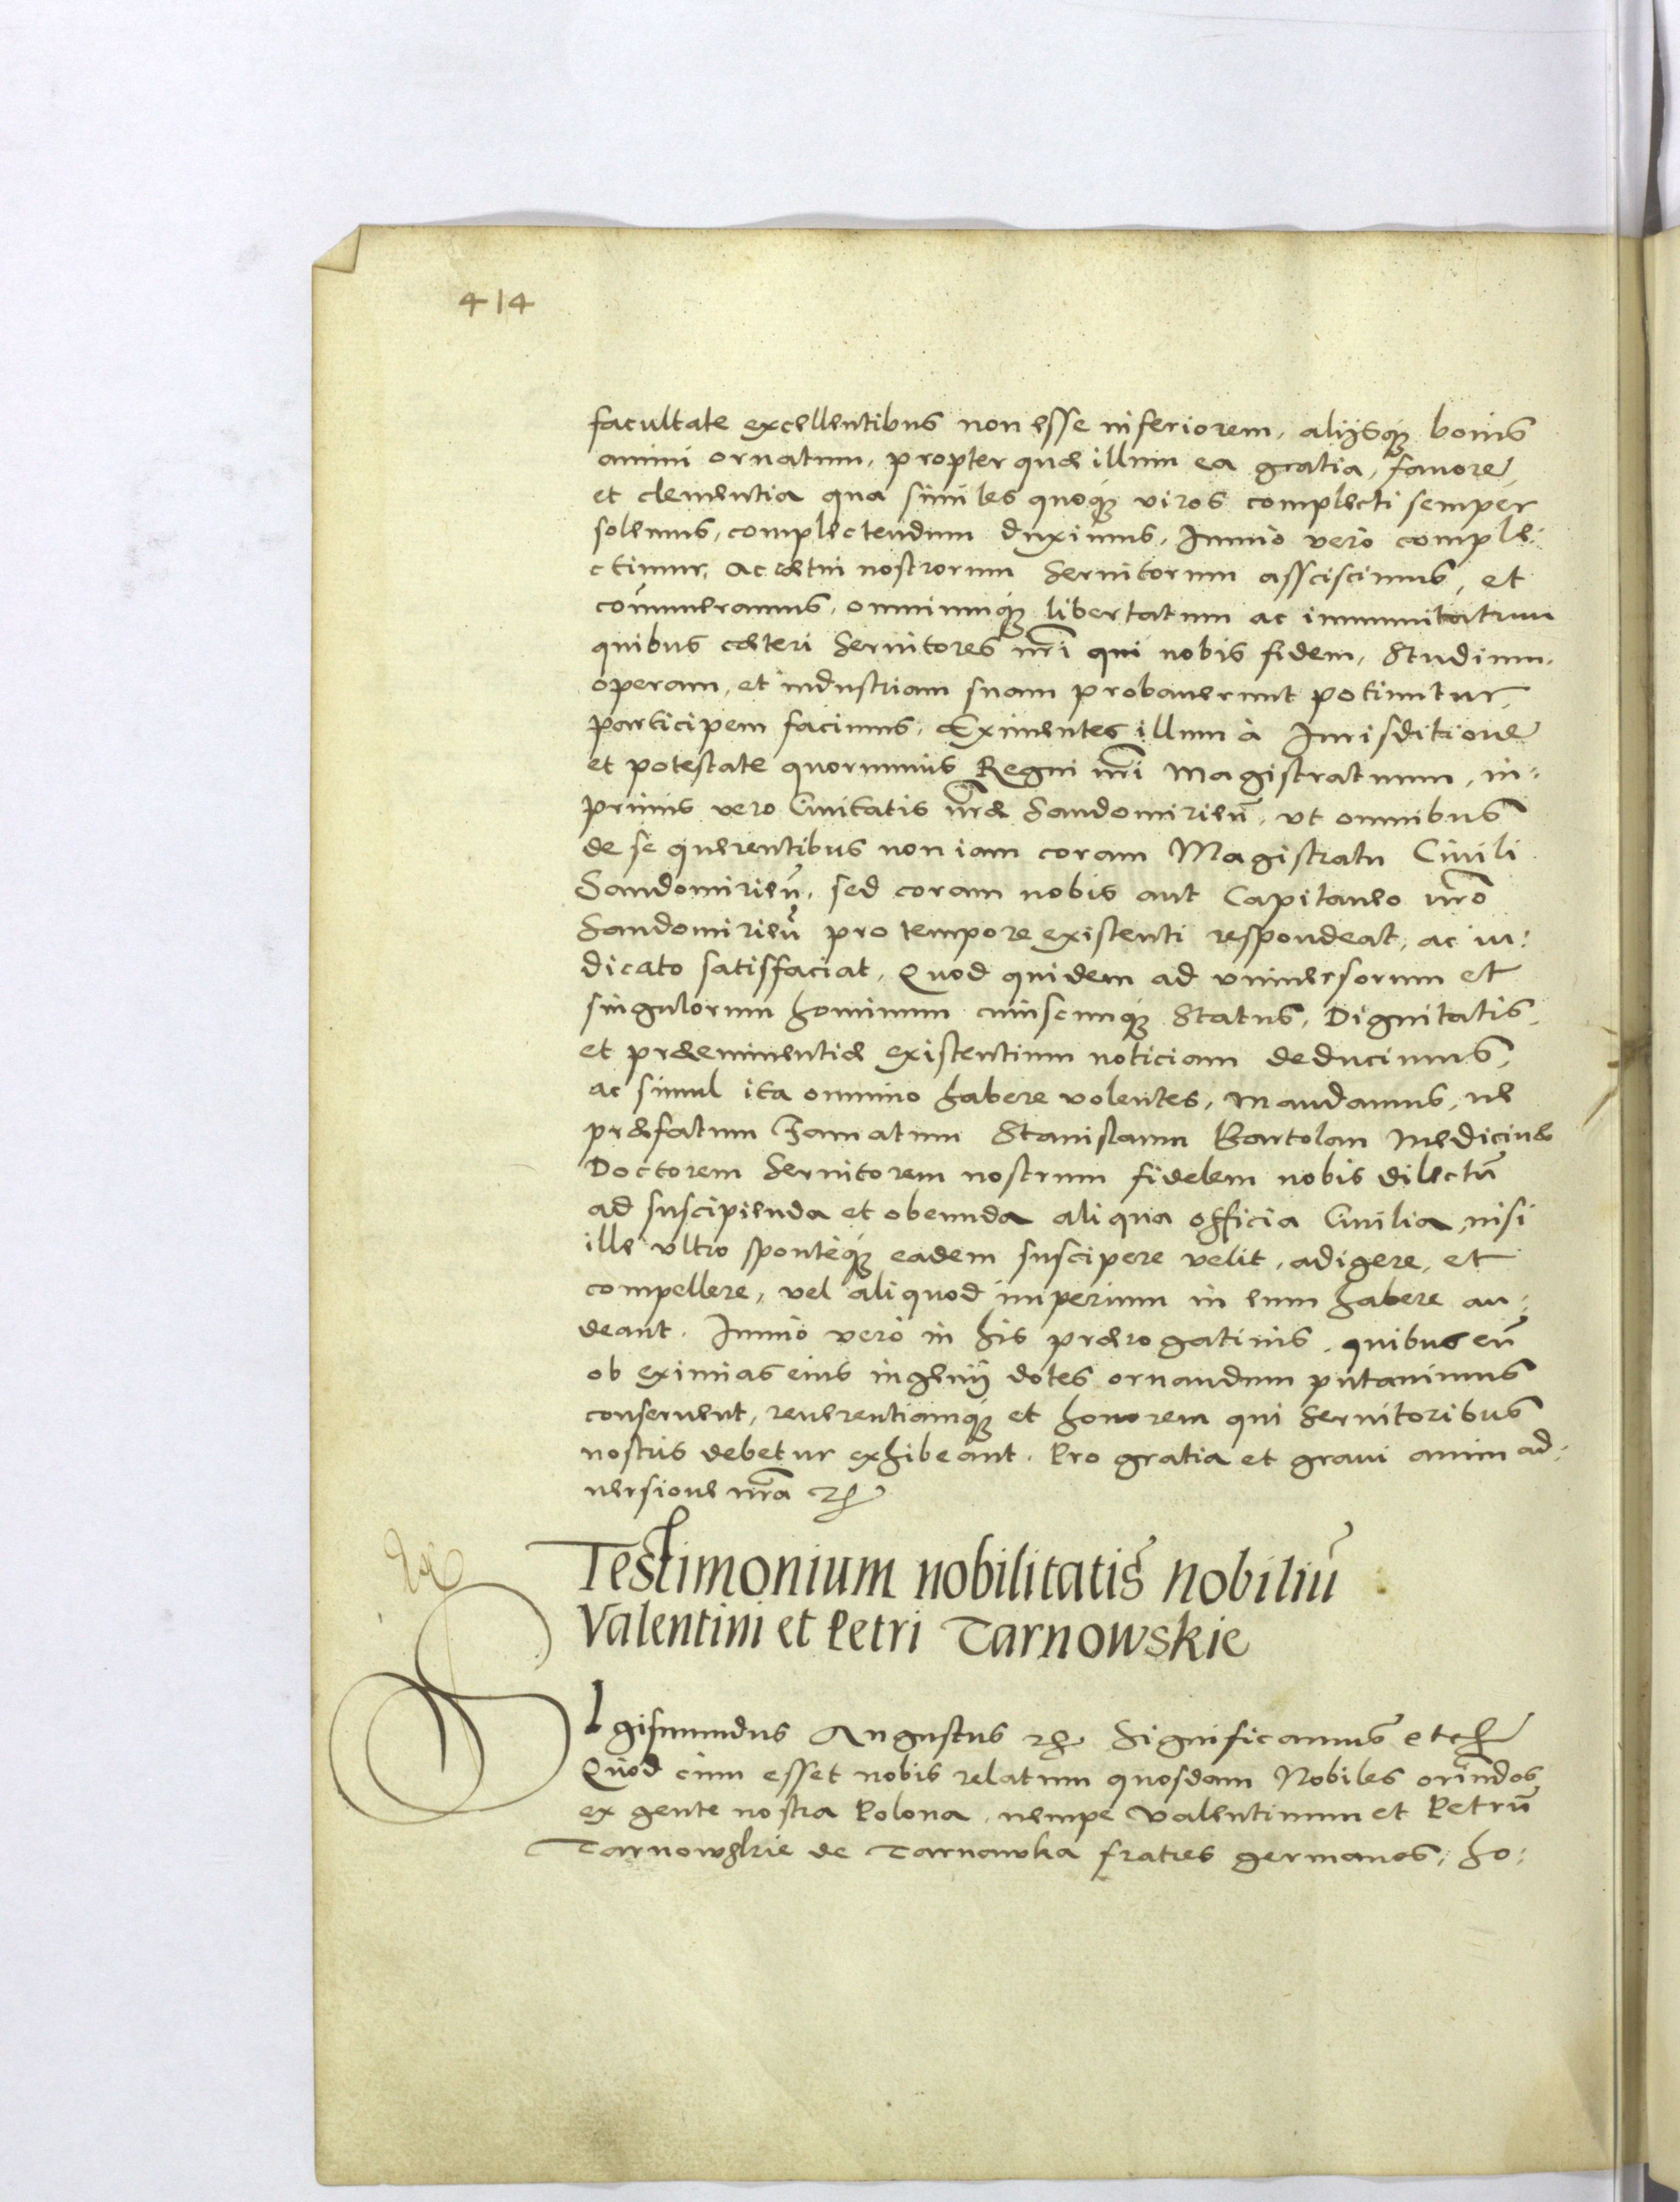 414
facultate excellentibus non esse inferiorem, aliisq̃ bonis
animi ornatum, propter quæ illum ea gratia, favore,
et clementia qua similes quoq̃ viros complecti semper
solemus, complectendum duximus. Immo vero comple
ctimur, ac cætui nostrorum Servitorum assciscimus, et
cõnumeramus, omniumq̃ libertatum ac immunitatum
quibus cæteri Servitores nrĩ qui nobis fidem, Studium,
operam, et industriam suam probaverunt potiuntur,
participem facimus, Eximentes illum à Jurisditione
et potestate quorumvis Regni nrĩ Magistratuum, in:
primis vero Civitatis nrã̃e Sandomirieñ, ut omnibus
de se querentibus non iam coram Magistratu Civili
Sandomirieñ, sed coram nobis aut Capitaneo nrõ
Sandomirieñ pro tempore existenti respondeat, ac iu:
dicato satisfaciat. Quod quidem ad universorum et
singulorum hominum cuiuscunq̃ Status, Dignitatis,
et præeminentiæ existentium noticiam deducimus,
ac simul ita omnino habere volentes, mandamus, ne
præfatum Famatum Stanislaum Bartolan Medicinæ
Doctorem Servitorem nostrum fidelem nobis dilectũ
ad suscipienda et obeunda aliqua officia Civilia, nisi
ille ultro sponteq̃ eadem suscipere velit, adigere, et
compellere, vel aliquod imperium in eum habere au:
deant. Immo vero in his prærogativis, quibus eũ
ob eximias eius ingenij dotes ornandum putavimus
conservent, reverentiamq̃ et honorem qui Servitoribus
nostris debetur exhibeant. Pro gratia et gravi animad:
versione nrã etc
Testimonium nobilitatis nobiliũ
Valentini et Petri Tarnowskie
Sigismundus Augustus etc Significamus etc
Quod cum esset nobis relatum quosdam Nobiles oriundos
ex gente nostra Polona, nempe Valentinum et Petrũ
Tarnowskie de Tarnawka fratres germanos, ho: